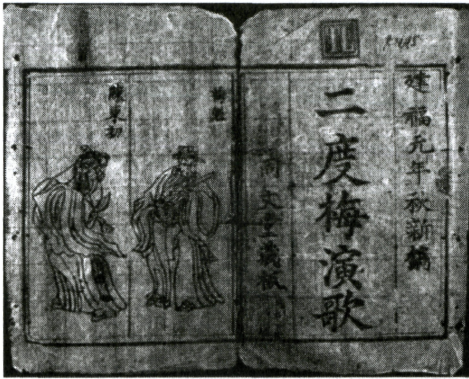 建福元年秋新鐫
二度梅演歌
同文堂藏板
梅魁
陳東初